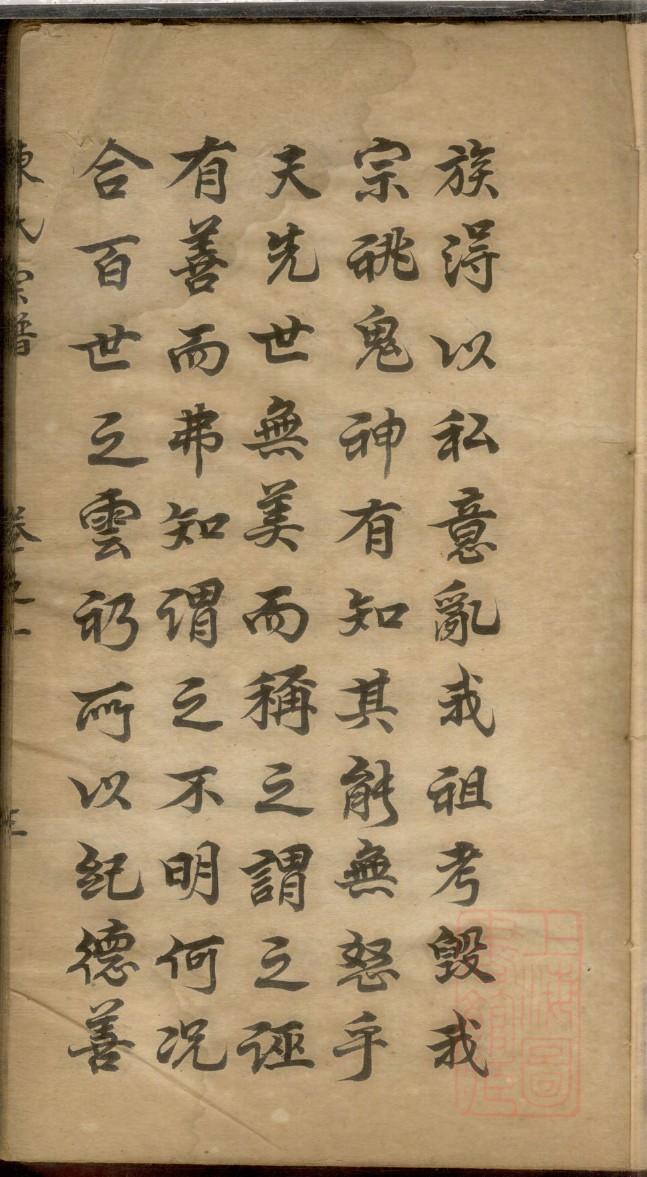 族得以私意亂我祖考毀我
宗祧鬼神有知其能無怒乎
夫先世無美而稱之謂之誣
有善而弗知謂之不明何况
合百世之雲礽所以紀德善
陳氏宗譜 卷之一 三
上海圖書館藏